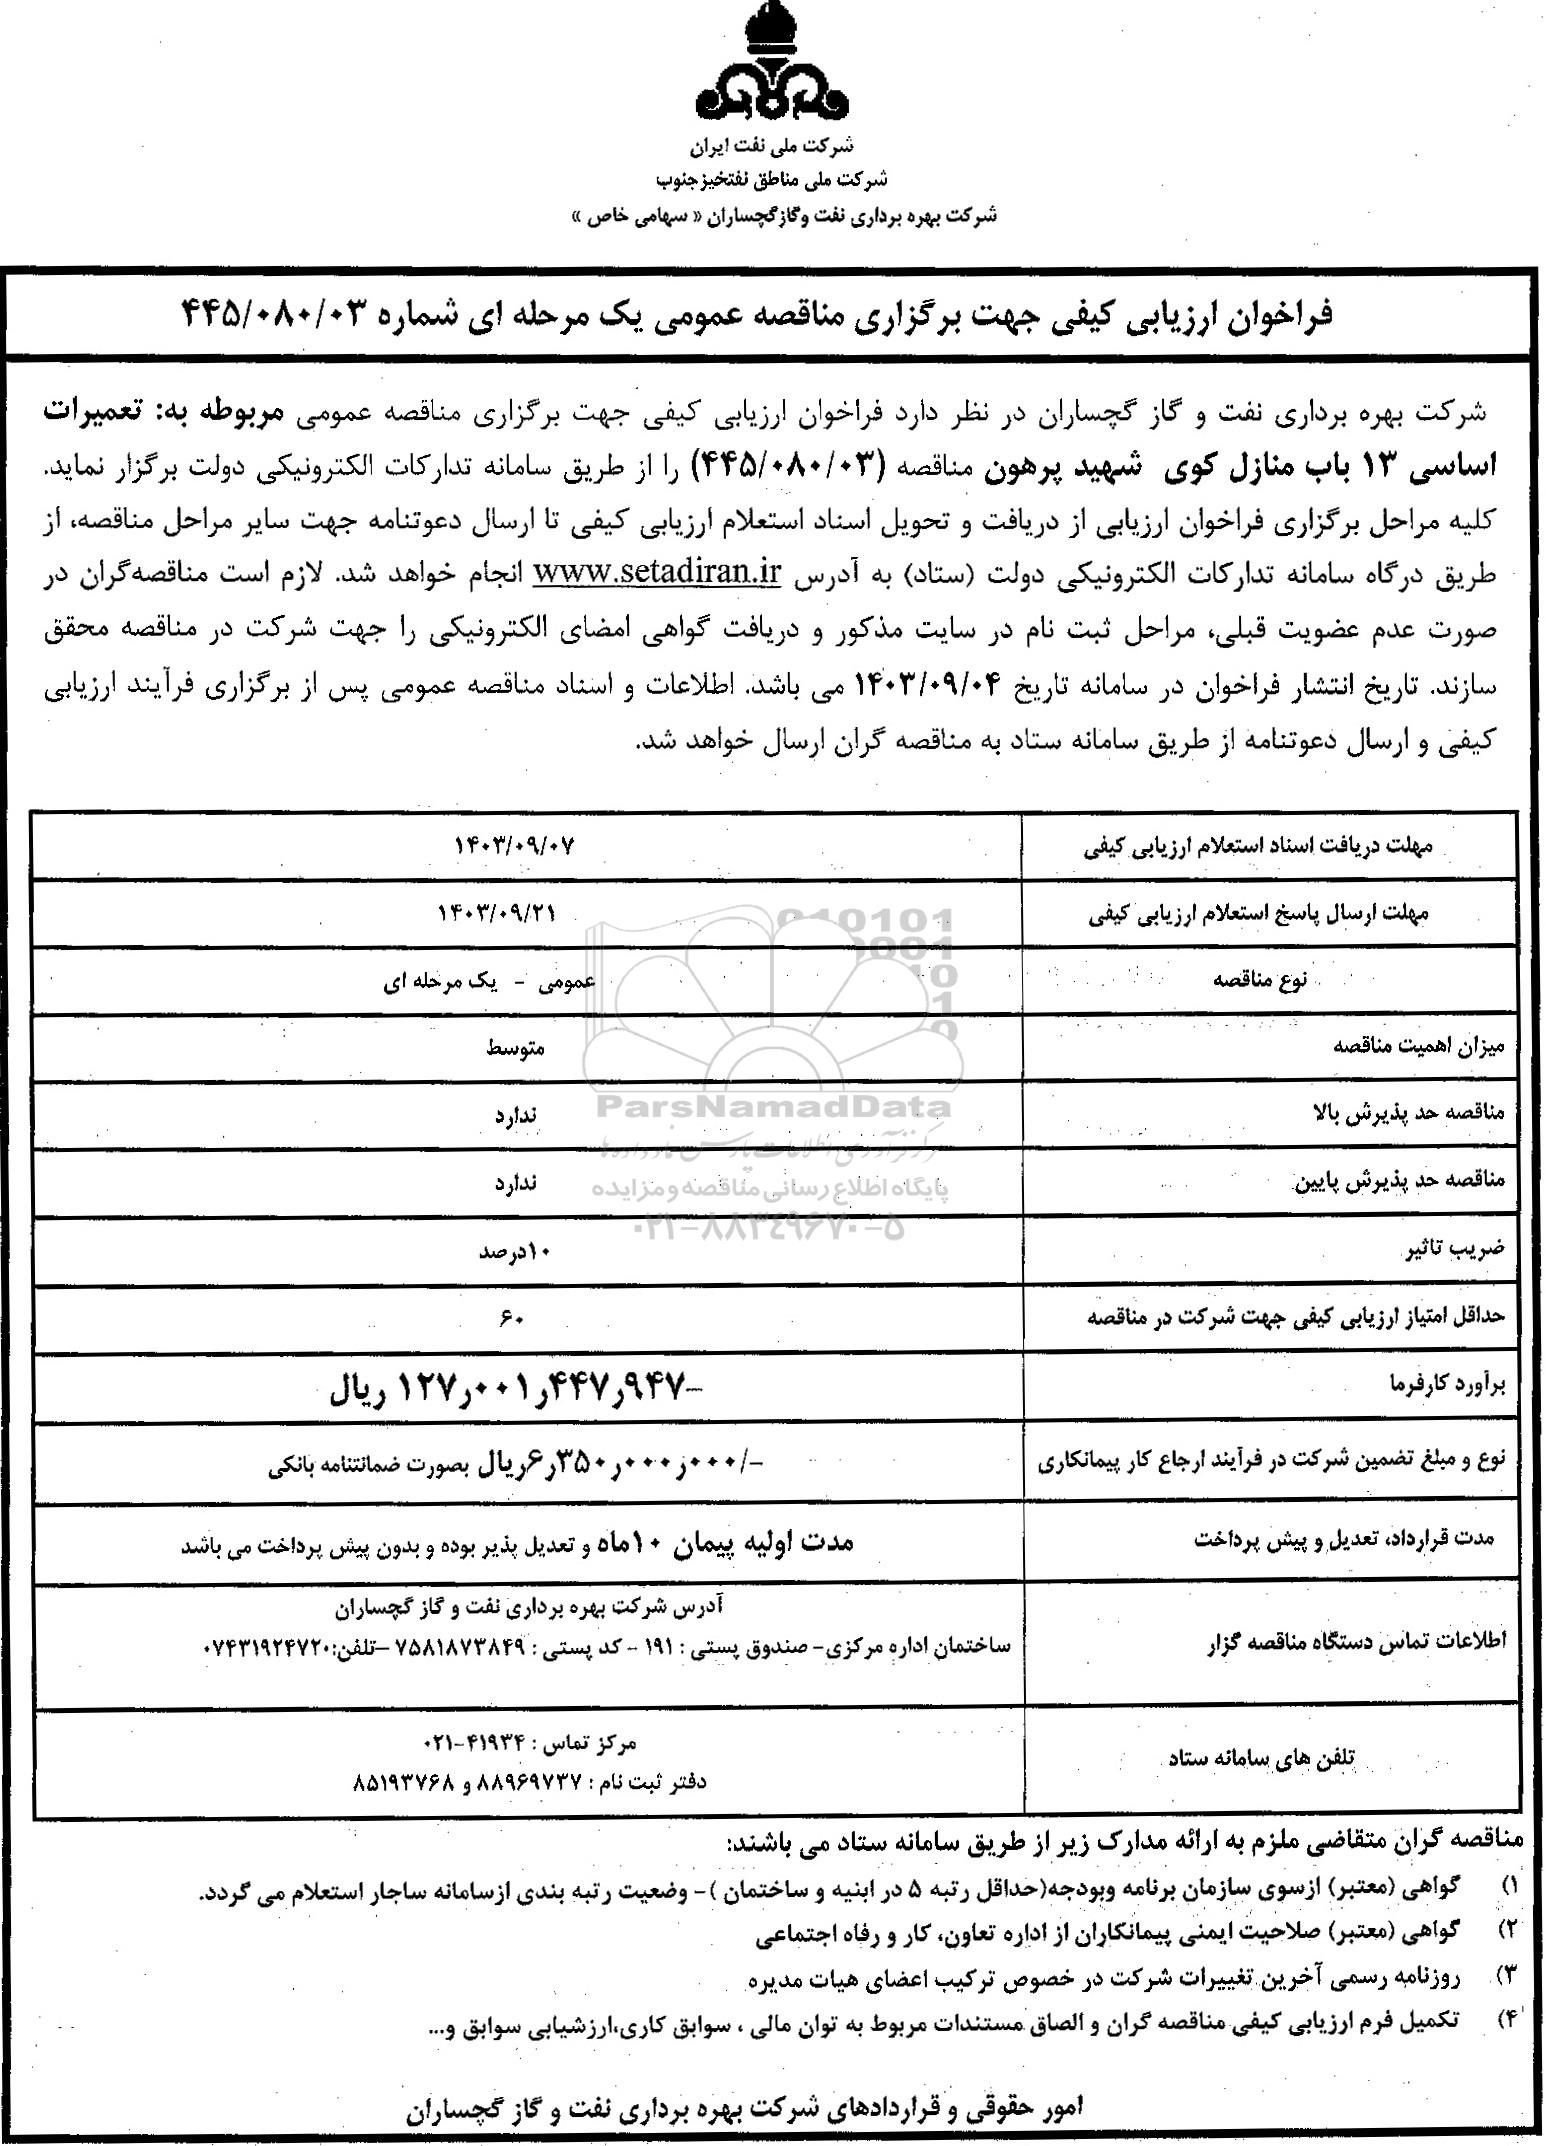 شرکت ملی نفت ایران
شرکت ملی مناطق نفتخیز جنوب
شرکت بهره برداری نفت وگازگچساران « سهامی خاص »
فراخوان ارزیابی کیفی جهت برگزاری مناقصه عمومی یک مرحله ای شماره ۴۴۵/۰۸۰/۰۳
شرکت بهره برداری نفت و گاز گچساران در نظر دارد فراخوان ارزیابی کیفی جهت برگزاری مناقصه عمومی مربوطه به: تعمیرات
اساسی ۱۳ باب منازل کوی شهید پرهون مناقصه (۴۴۵/۰۸۰/۰۳) را از طریق سامانه تدارکات الکترونیکی دولت برگزار نماید.
کلیه مراحل برگزاری فراخوان ارزیابی از دریافت و تحویل اسناد استعلام ارزیابی کیفی تا ارسال دعوتنامه جهت سایر مراحل مناقصه، از
طریق درگاه سامانه تدارکات الکترونیکی دولت (ستاد) به آدرس www.setadiran.ir انجام خواهد شد. لازم است مناقصه‌گران در
صورت عدم عضویت قبلی، مراحل ثبت نام در سایت مذکور و دریافت گواهی امضای الکترونیکی را جهت شرکت در مناقصه محقق
سازند. تاریخ انتشار فراخوان در سامانه تاریخ ۱۴۰۳/۰۹/۰۴ می باشد. اطلاعات و اسناد مناقصه عمومی پس از برگزاری فرآیند ارزیابی
کیفی و ارسال دعوتنامه از طریق سامانه ستاد به مناقصه گران ارسال خواهد شد.
مهلت دریافت اسناد استعلام ارزیابی کیفی ۱۴۰۳/۰۹/۰۷
مهلت ارسال پاسخ استعلام ارزیابی کیفی ۱۴۰۳/۰۹/۲۱
نوع مناقصه عمومی - یک مرحله ای
میزان اهمیت مناقصه متوسط
مناقصه حد پذیرش بالا ندارد
مناقصه حد پذیرش پایین ندارد
ضریب تاثیر ۱۰درصد
حداقل امتیاز ارزیابی کیفی جهت شرکت در مناقصه ۶۰
برآورد کارفرما ۱۲۷٫۰۰۱٫۴۴۷٫۹۴۷- ریال
نوع و مبلغ تضمین شرکت در فرآیند ارجاع کار پیمانکاری ۶٫۳۵۰٫۰۰۰٫۰۰۰/- ریال بصورت ضمانتنامه بانکی
مدت قرارداد، تعدیل و پیش پرداخت مدت اولیه پیمان ۱۰ماه و تعدیل پذیر بوده و بدون پیش پرداخت می باشد
اطلاعات تماس دستگاه مناقصه گزار آدرس شرکت بهره برداری نفت و گاز گچساران
ساختمان اداره مرکزی- صندوق پستی : ۱۹۱ - کد پستی : ۷۵۸۱۸۷۳۸۴۹ –تلفن:۰۷۴۳۱۹۲۴۷۲۰
تلفن های سامانه ستاد مرکز تماس : ۴۱۹۳۴-۰۲۱
دفتر ثبت نام : ۸۸۹۶۹۷۳۷ و ۸۵۱۹۳۷۶۸
مناقصه گران متقاضی ملزم به ارائه مدارک زیر از طریق سامانه ستاد می باشند:
۱) گواهی (معتبر) ازسوی سازمان برنامه وبودجه(حداقل رتبه ۵ در ابنیه و ساختمان )- وضعیت رتبه بندی ازسامانه ساجار استعلام می گردد.
۲) گواهی (معتبر) صلاحیت ایمنی پیمانکاران از اداره تعاون، کار و رفاه اجتماعی
۳) روزنامه رسمی آخرین تغییرات شرکت در خصوص ترکیب اعضای هیات مدیره
۴) تکمیل فرم ارزیابی کیفی مناقصه گران و الصاق مستندات مربوط به توان مالی ، سوابق کاری،ارزشیابی سوابق و...
امور حقوقی و قراردادهای شرکت بهره برداری نفت و گاز گچساران
ParsNamadData
پایگاه اطلاع رسانی مناقصه و مزایده
۰۲۱-۸۸۳۴۹۶۷۰-۵